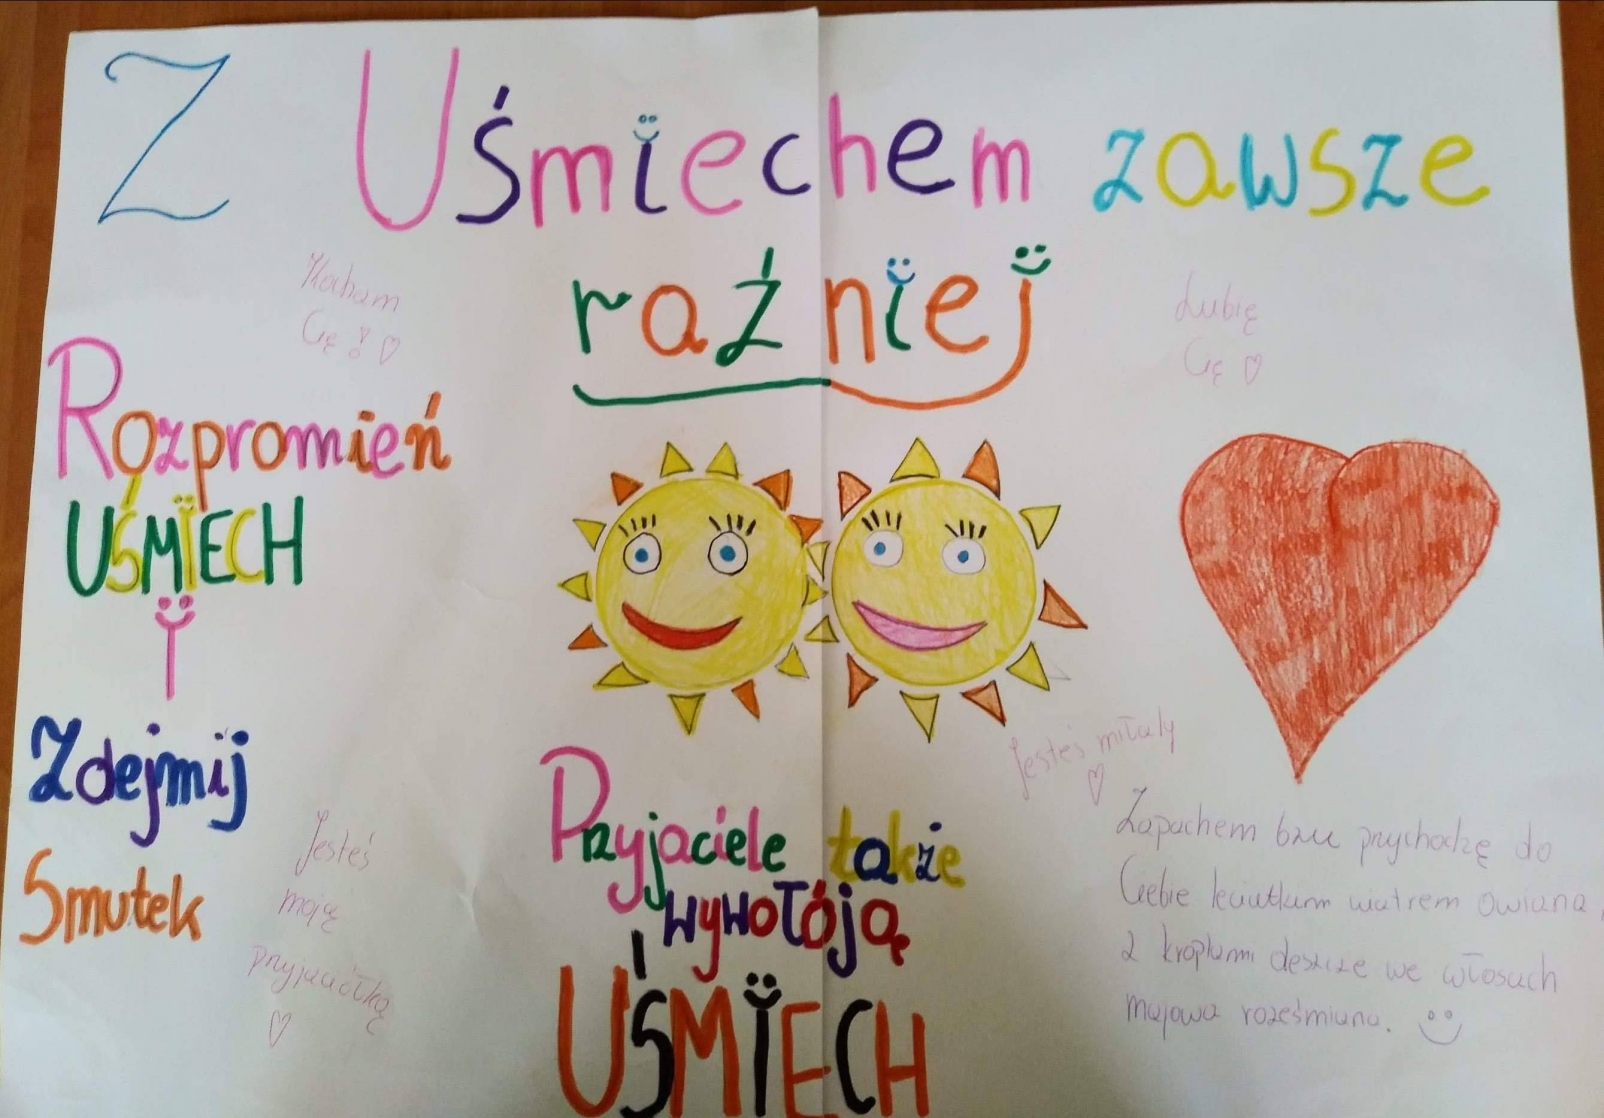 Z Uśmiechem zawsze
raźniej
Kocham
Cię! ♡
Lubię
Cię ♡
Rozpromień
UŚMIECH
i
Zdejmij
Smutek
Jesteś
moją
przyjaciółką
♡
Przyjaciele także
wywołóją
UŚMIECH
Jesteś
♡
Zapachem bzu przychodzę do
Ciebie leciutkim wiatrem owiana,
z kroplami deszcze we włosach
majowa roześmiana.